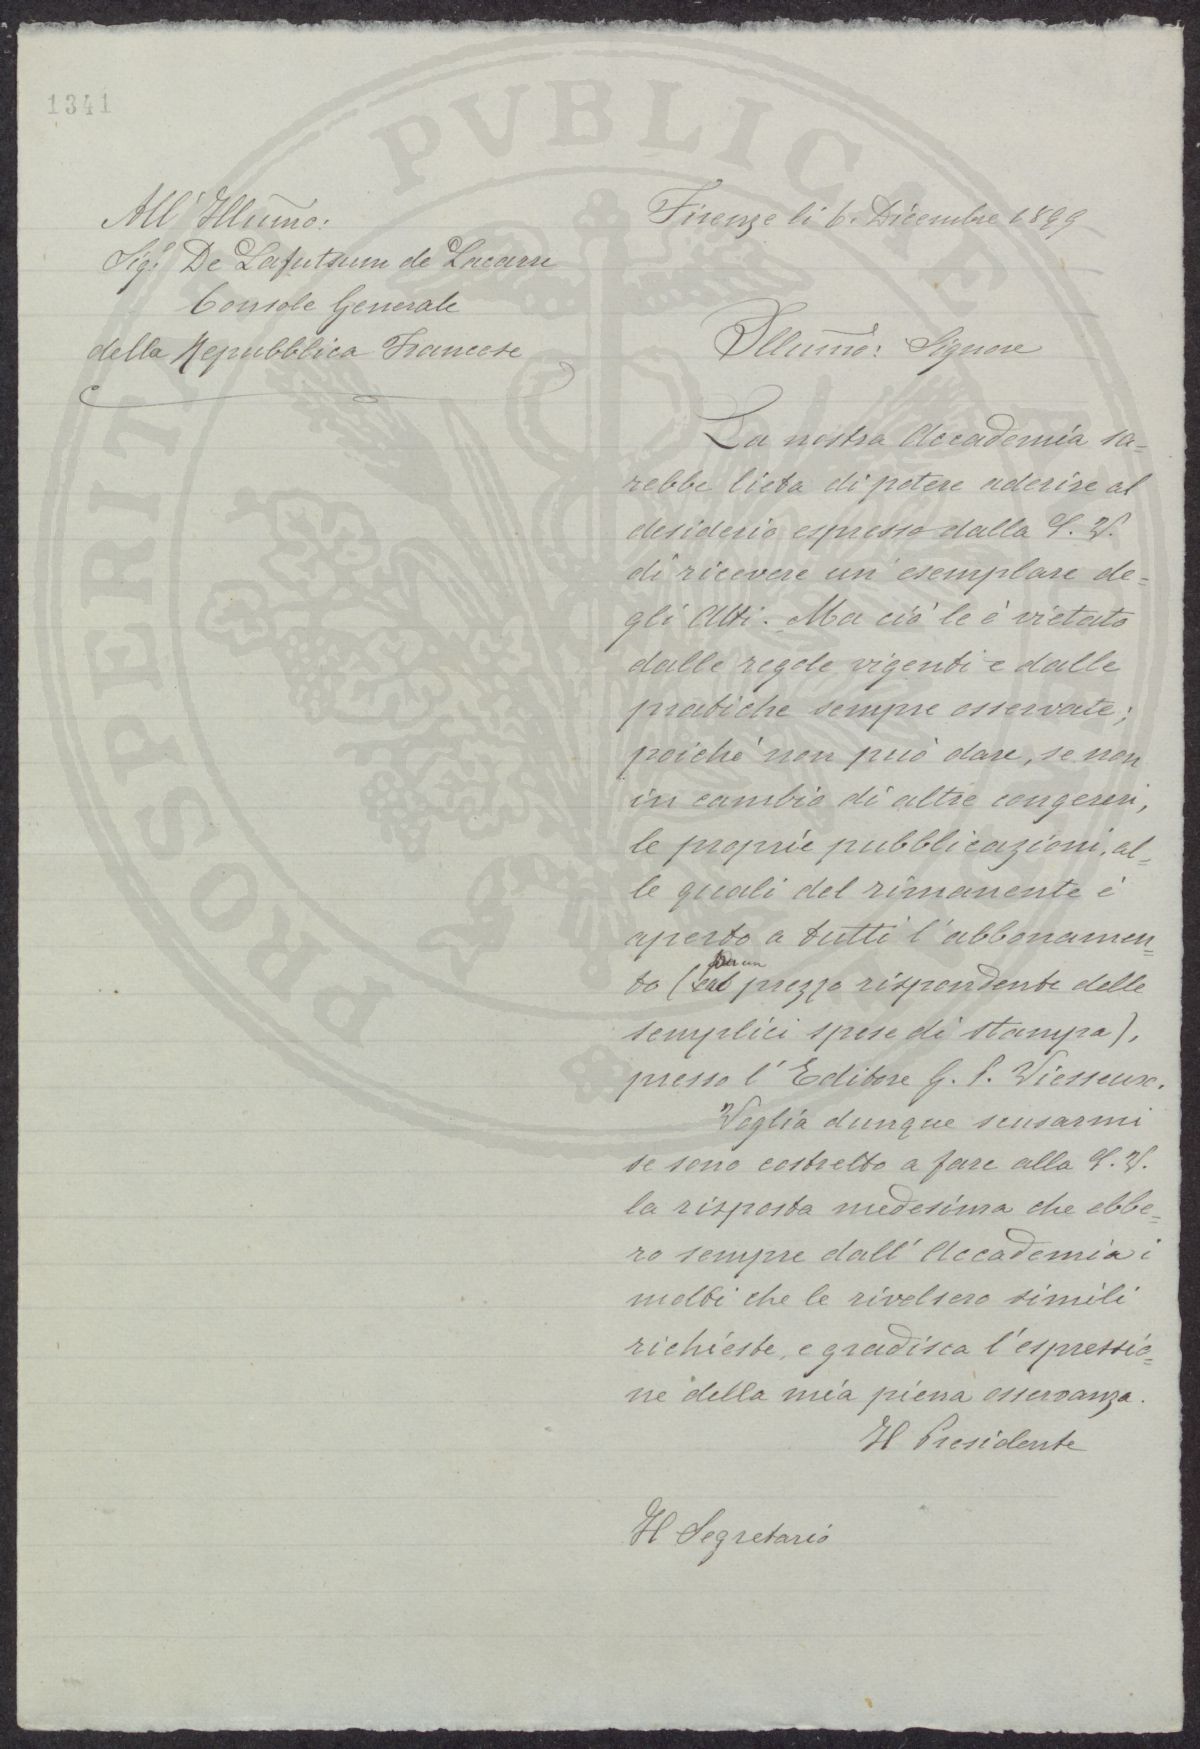 1341
All' Illuṁo:
Sigr De Lafutsun de Lacarre
Console Generale
della Repubbblica Francese
Firenze li 6. Dicembre 1899
Illuṁo: Signore
La nostra Accademia sa=
rebbe lieta di potere aderire al
desiderio espresso dalla S. V.
di ricevere un' esemplare de=
gli Atti. Ma ciò le è vietato
dalle regole vigenti e dalle
pratiche sempre osservate;
poichè non può dare, se non
in cambio di altre congeneri,
le proprie pubblicazioni, al=
le quali del rimanente è
aperto a tutti l'abbonamen=
to (per un prezzo rispondente delle
semplici spese di stampa),
presso l'Editore G. P. Viesseux.
Voglia dunque scusarmi
se sono costretto a fare alla S. V.
la risposta medesima che ebbe=
ro sempre dall' Accademia i
molti che le rivolsero simili
richieste, e gradisca l'espressio=
ne della mia piena osservanza.
Il Presidente
Il Segretario
PROSPERITATI PUBLICAE AUGENDAE